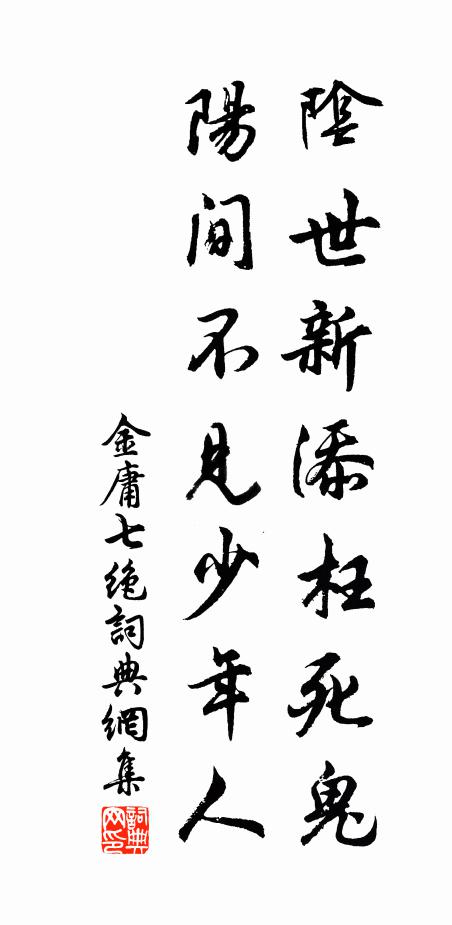 陰世新添枉死鬼
陽间不見少年人
金庸七绝詞典網集
詞典
网印